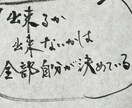 出来るか
出来ないかは
全部自分が決めている